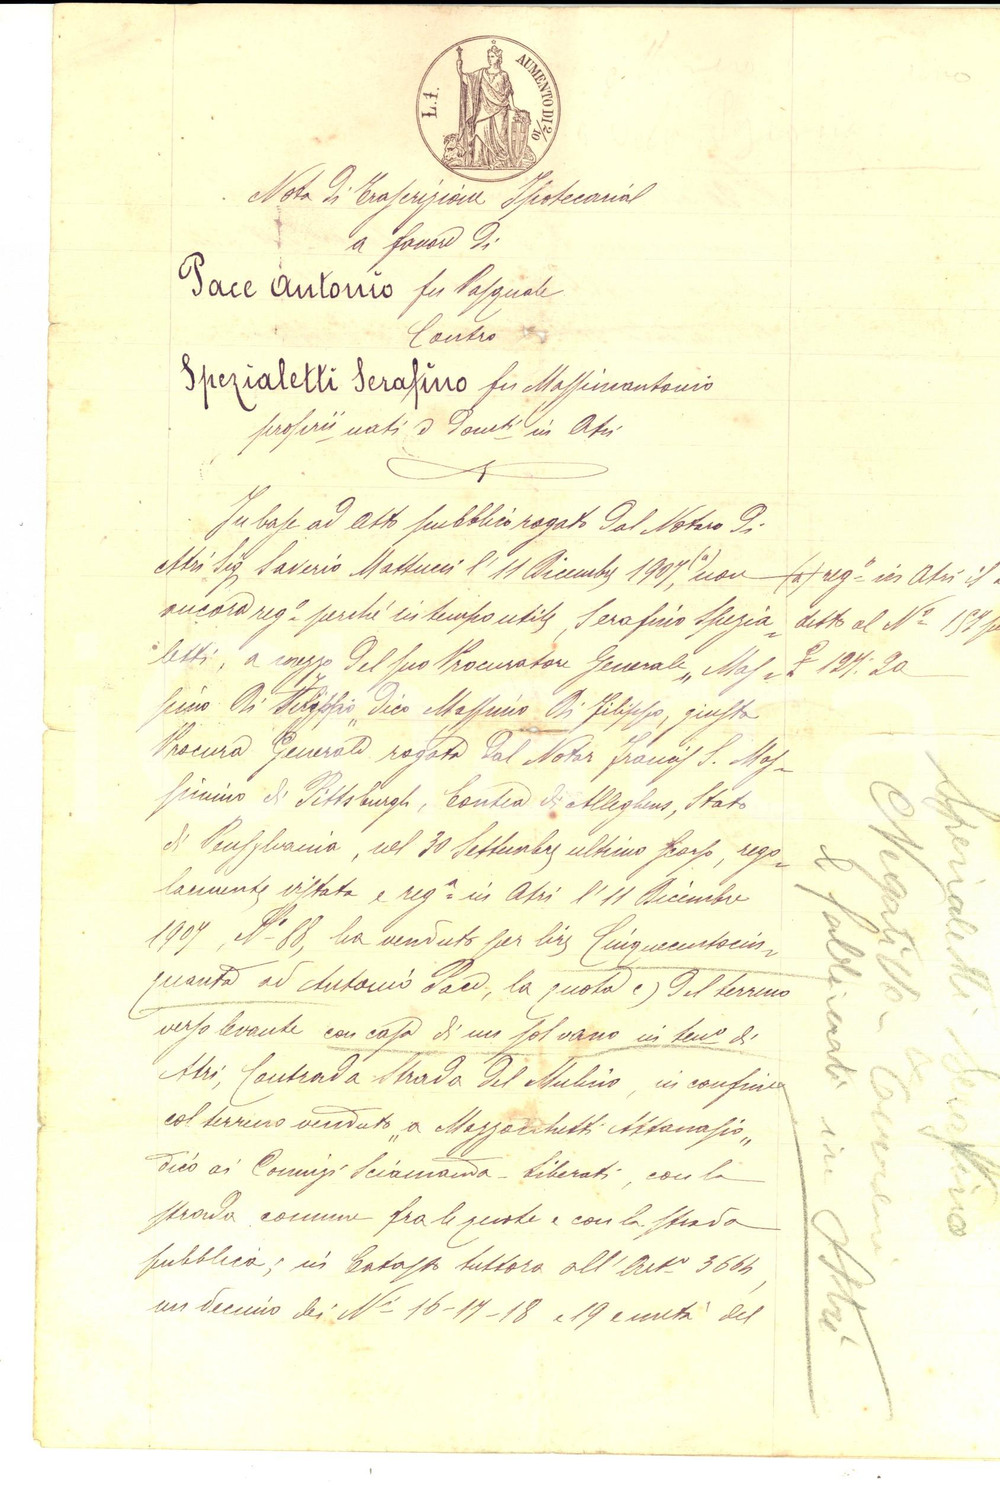 L. 1.
AUMENTO DI 2/10
Nota di Trascrizione Ipotecaria
a favore di
Pace Antonio fu Pasquale
Contro
Spezialetti Serafino fu Massimantonio
proprii nati e domti in Atri
In base ad atto pubblico rogato dal Notaro di
Atri Sig. Saverio Mattucci l' 11 Dicembre 1907, (a) non
ancora rego perché in tempo utile, Serafino Spezia=
letti, a mezzo del suo Procuratore Generale „ Mas=
simo Di Filippo „ dico Massimo Di Filippo, giusta
Procura Generale rogata dal Notar Francis S. Mas=
simino di Pittsburgh, Contea di Alleghens, Stato
di Pensylvania, nel 30 Settembre ultimo scorso, rego=
larmente vistata e rega in Atri l' 11 Dicembre
1907, No 88, ha venduto per lire Cinquecentocin=
quanta ad Antonio Pace, la quota c) del terreno
verso levante con casa di un sol vano in teno di
Atri, Contrada Strada del Mulino, in confine
col terreno venduto „ a Mazzocchetti Attanasio „
dico ai Coniugi Sciamanda - Liberati, con la
strada comune fra le quote e con la strada
pubblica; in Catasto tuttora all' Arto 3664,
un decimo dei Ni 16-17-18 e 19 e metà del
(a) rego in Atri il
detto al No 157
£ 127:20
Spezialetti Serafino
in Atri